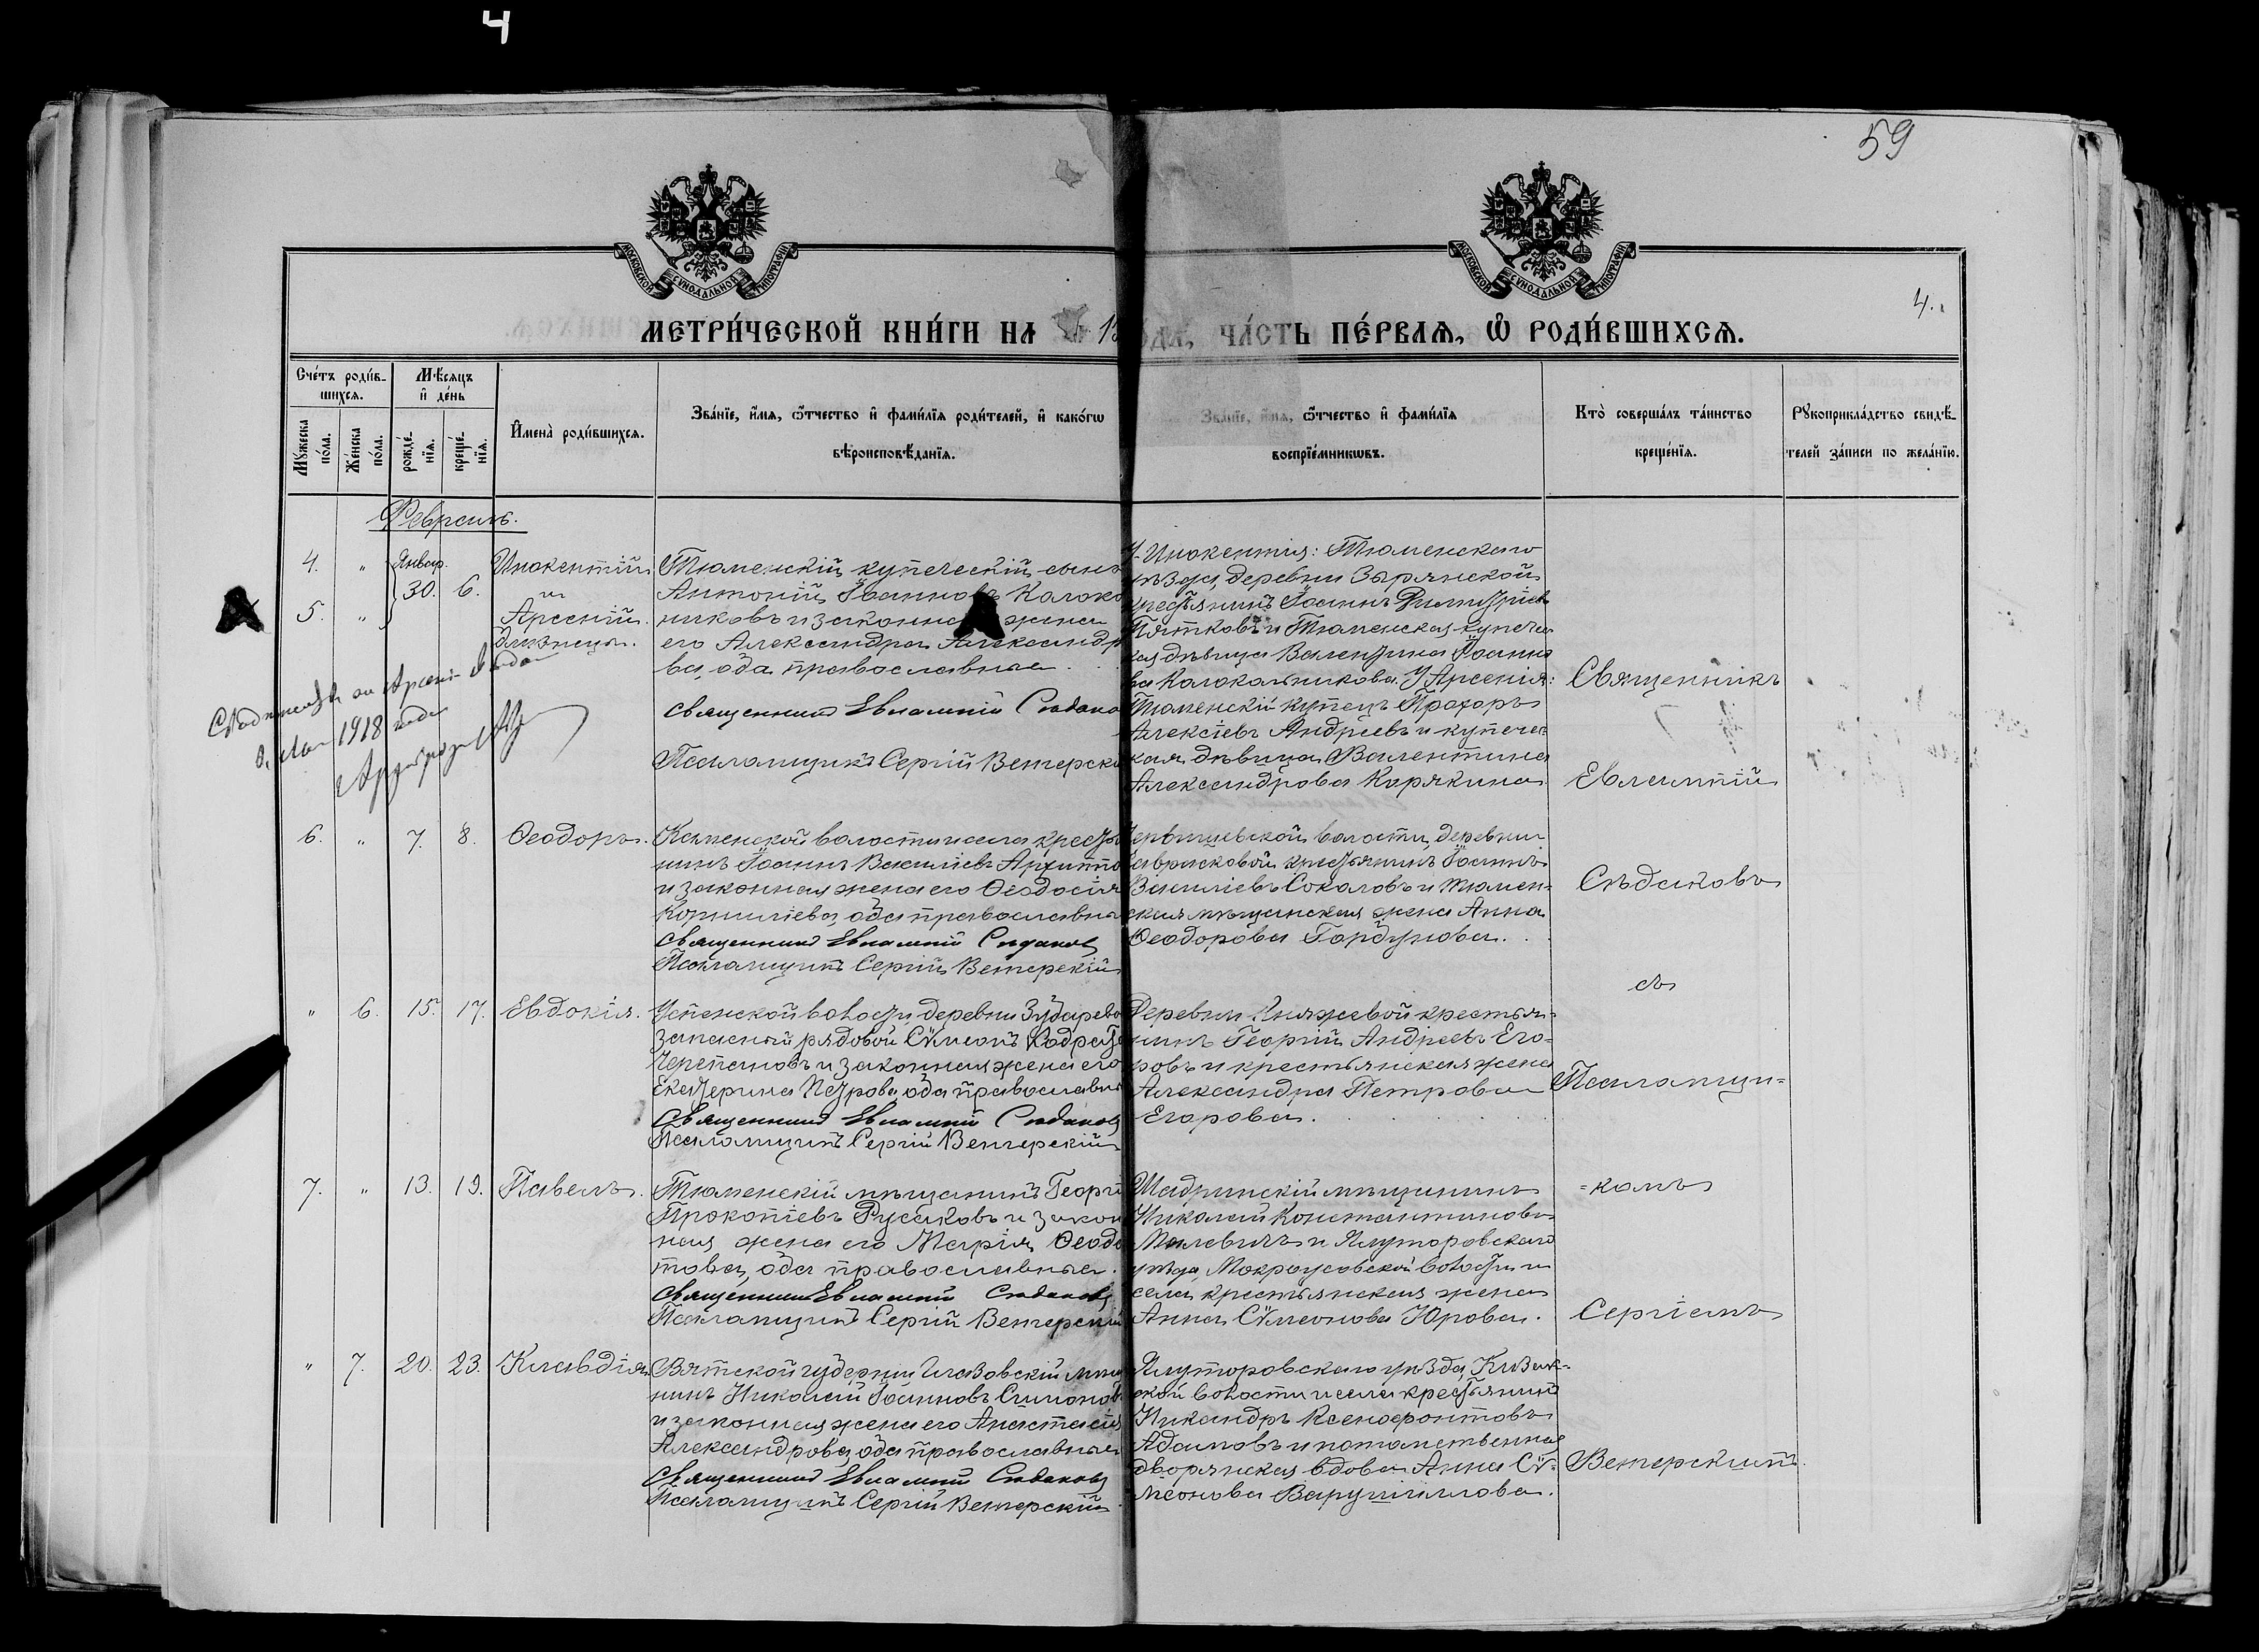 4
59
МОСКОВСКОЙ СѴНОДАЛЬНОЙ ТИПОГРАФІИ
МОСКОВСКОЙ СѴНОДАЛЬНОЙ ТИПОГРАФІИ
4.
МЕТРИ́ЧЕСКОЙ КНИ́ГИ НА 19
ОДА, ЧА́СТЬ ПЕ́РВАѦ, Ѽ РОДИ́ВШИХСѦ.
Сче́тъ роди́в-
шихсѧ.
Мѣ́сѧцъ
и҆ де́нь
Мꙋ́жеска
по́ла.
Же́нска
по́ла.
рожде́-
нїѧ.
креще́-
нїѧ.
И҆мена̀ роди́вшихсѧ.
Зва́нїе, и҆́мѧ, ѻ҆́тчество и҆ фами́лїѧ роди́телей, и҆ како́гѡ
вѣроисповѣ́данїѧ.
Зва́нїе, и҆́мѧ, ѻ҆́тчество и҆ фами́лїѧ
воспрїе́мникѡвъ.
Кто̀ соверша́лъ та́инство
креще́нїѧ.
Рꙋкоприкла́дство свидѣ́-
телей за́писи по жела́нїю.
Февраль.
4. " Январ. 30. 6. Инокентій
и
5. " Арсеній.
близнецы.
Тюменскій купеческій сынъ
Антоній Іоанновъ Колоко
никовъ и законная жена
его Александра Александр
ва, оба православные.
Священникъ Евлампій Сѣдако
Псаломщикъ Сергій Венгерскі
У Инокентія: Тюменскаго
уѣзда, деревни Зырянской
крестьянинъ Іоаннъ Димитріевъ
Пятковъ и Тюменская купечес
кая дѣвица Валентина Іоанно
ва Колокольникова. У Арсенія:
Тюменскій купецъ Прохоръ
Алексіевъ Андреевъ и купечес
кая дѣвица Валентина
Александрова Корякина
1918 года
6. " 7. 8. Ѳеодоръ.
Каменской волости и села кресть
нинъ Іоаннъ Василіевъ
и законная жена его Ѳеодосія
Корниліева, оба православны
Священникъ Евлампій Сѣдаковъ
Псаломщикъ Сергій Венгерскій
Червишевской волости, деревни
крестьянинъ Іоаннъ
Василіевъ Соколовъ и тюмен-
ская мѣщанская жена Анна
Ѳеодорова Гордунова.
" 6. 15. 17. Евдокія.
Успенской волости, деревни Зубарево
запасный рядовой Сѵмеонъ
Черепановъ и законная жена его
Екатерина Петрова, оба православны
Священникъ Евлампій Сѣдаковъ
Псаломщикъ Сергій Венгерскій
Деревни Княжевой крестья-
нинъ Георгій Андреевъ Его-
ровъ и крестьянская жена
Александра Петрова
Егорова.
7. " 13. 19. Павелъ.
Тюменскій мѣщанинъ Георгі
Прокопіевъ Русаковъ и закон
ная жена его Марія Ѳеодо
това, оба православные.
Священникъ Евлампій Сѣдаковъ
Псаломщикъ Сергій Венгерскій
Шадринскій мѣщанинъ
Николай Константиновъ
и Ялуторовскаго
уѣзда, Мокроусовской волости и
села крестьянская жена
Анна Сѵмеонова Юрова.
" 7. 20. 23. Клавдія.
Вятской губерніи Глазовскій мѣща
нинъ Николай Іоанновъ Симонов
и законная жена его Анастасія
Александрова, оба православные
Священникъ Евлампій Сѣдаковъ
Псаломщикъ Сергій Венгерскій
Ялуторовскаго уѣзда, Кизак-
ской волости и села крестьянинъ
Никандръ Ксенофонтовъ
Адамовъ и потомственная
дворянская вдова Анна Сѵ-
меонова
Священникъ
Евлампій
Сѣдаковъ
съ
Псаломщи-
-комъ
Сергіемъ
Венгерскимъ.